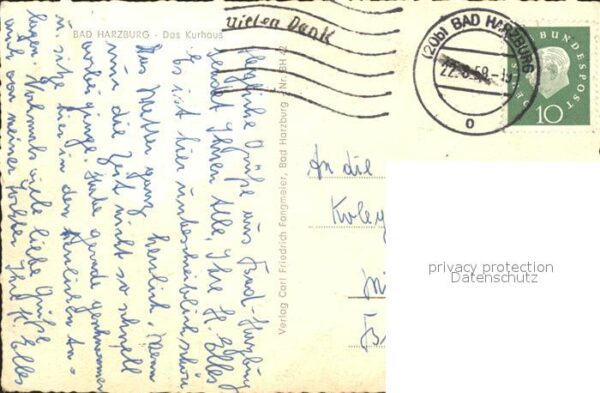 BAD HARZBURG - Das Kurhaus
Vielen Dank
(20b) BAD HARZBURG
22.8.59.-15
o
DEUTSCHE BUNDESPOST
10
Verlag Carl Friedrich Fangmeier, Bad Harzburg - Nr. BH 42
Herzliche Grüße aus Bad-Harzburg
sendet Ihnen Alle, Ihre H. Elles
Es ist hier unbeschreiblich schön
Das Wetter ganz herrlich. Wenn
nur die Zeit nicht so schnell
vorbei ginge. Habe gerade genommen
u. sitze hier in den herrlichen An-
lagen. Nochmals viele liebe Grüße
und von meiner Tochter Ihre H. Elles
An die
privacy protection
Datenschutz